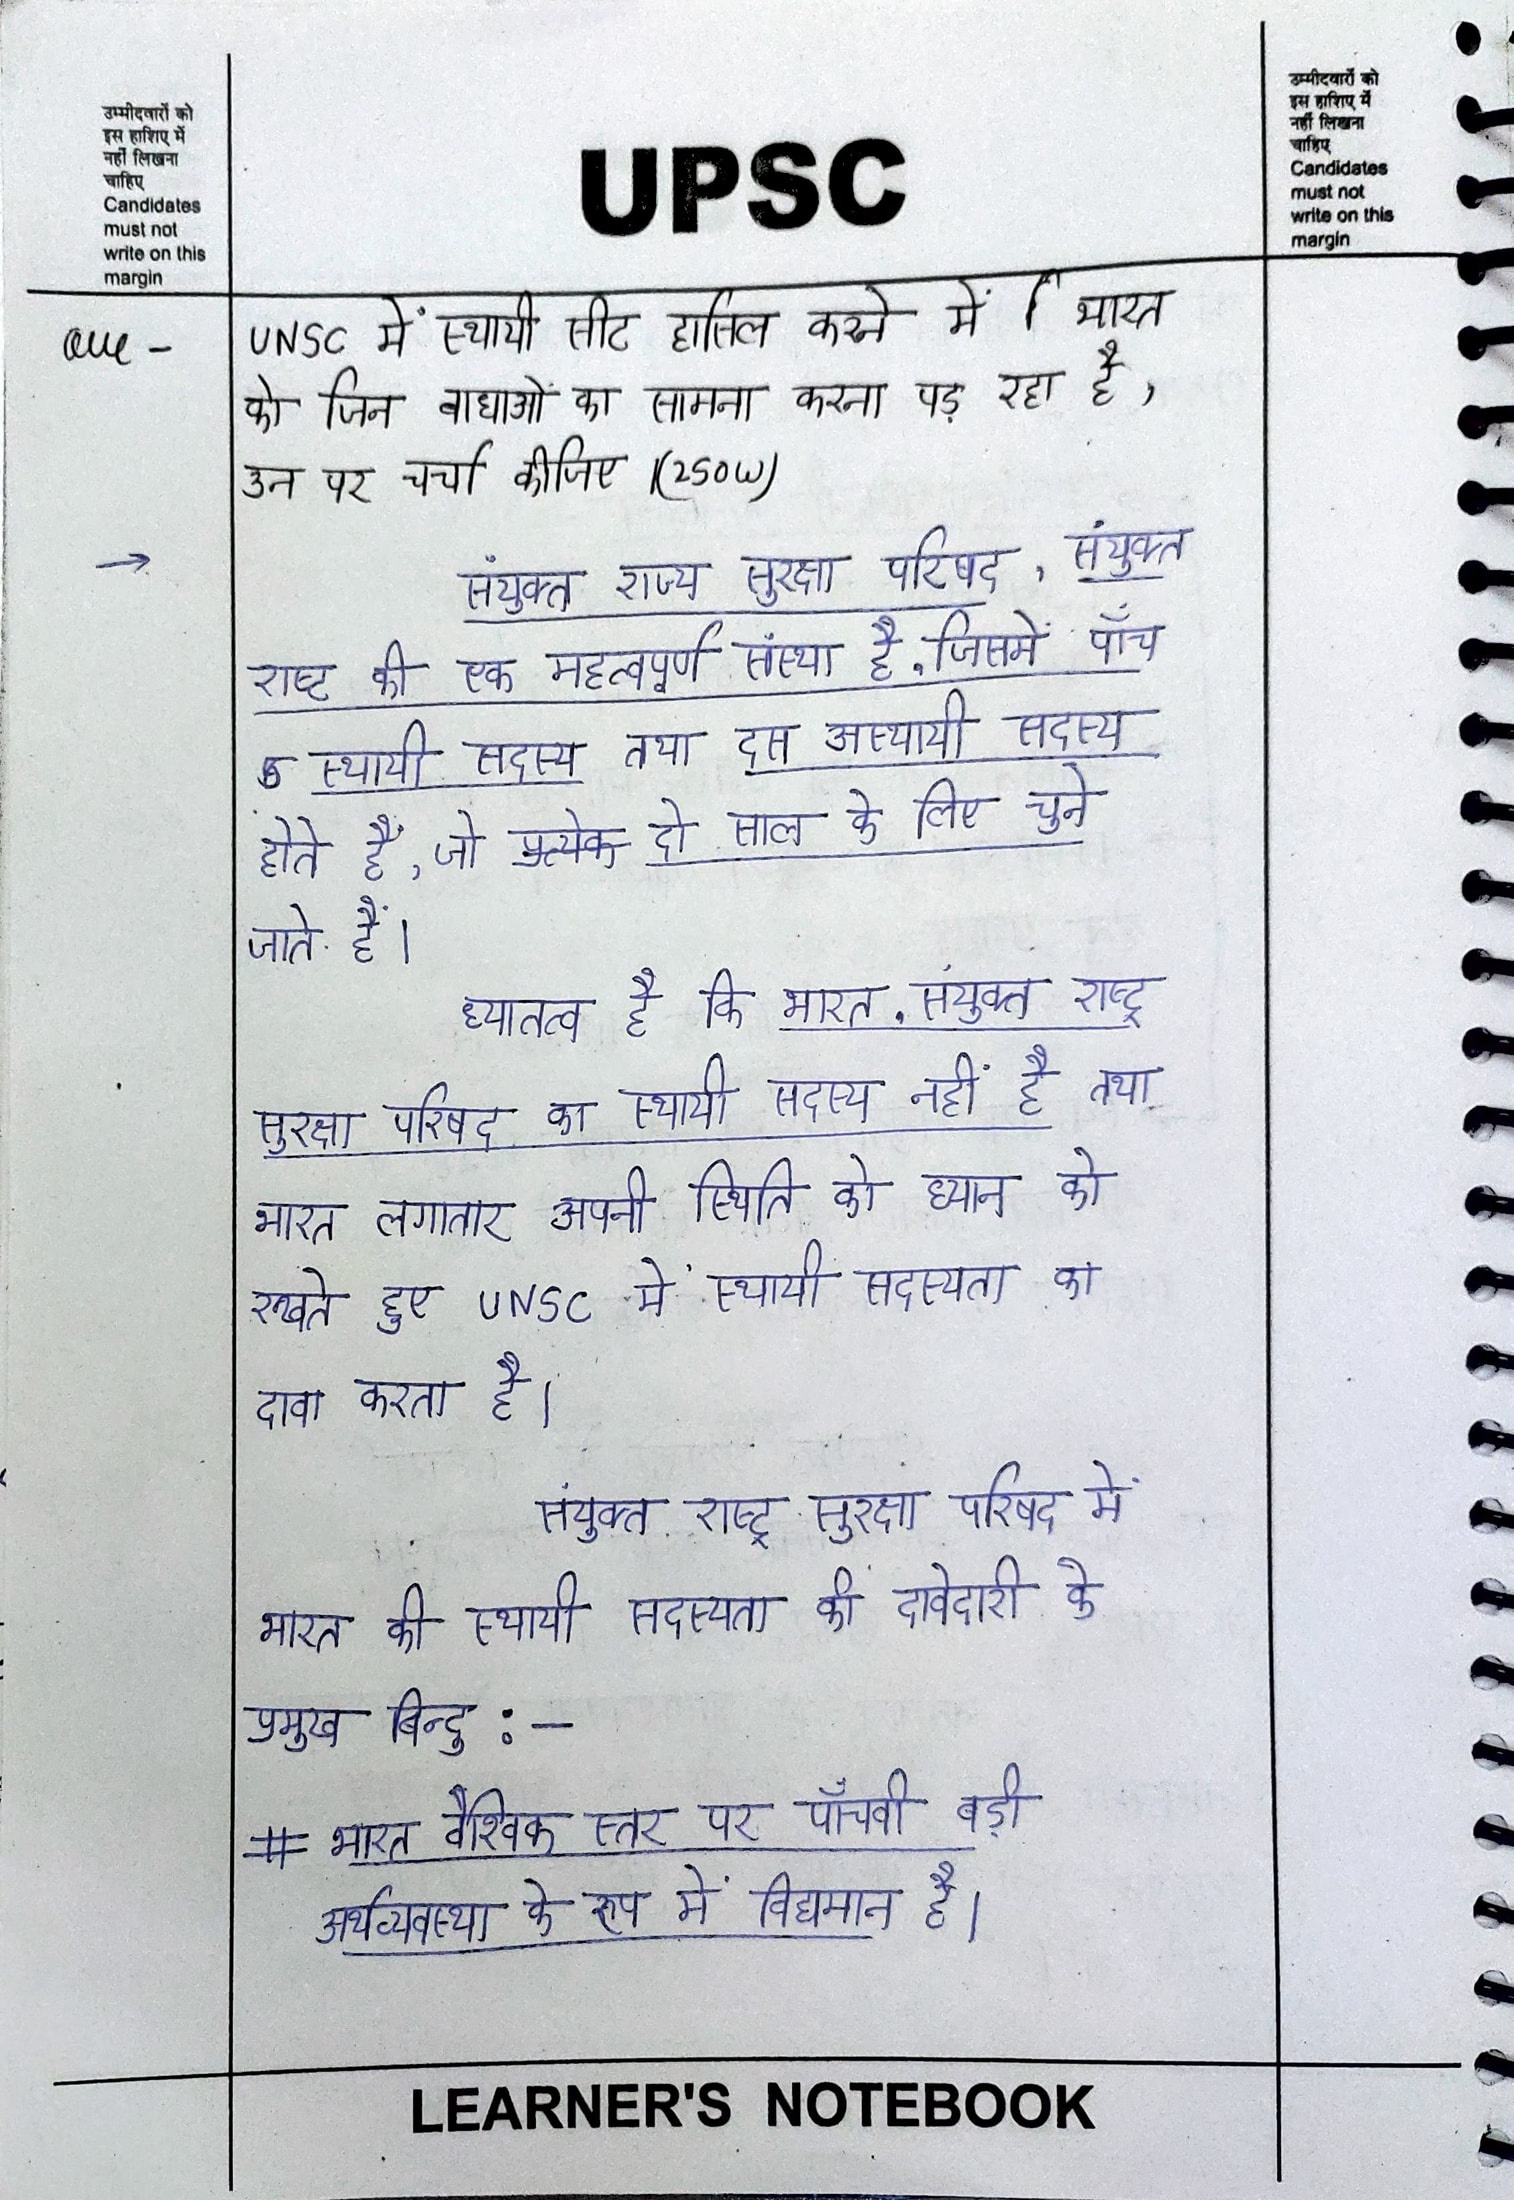 उम्मीदवारों को
इस हाशिए में
नहीं लिखना
चाहिए
Candidates
must not
write on this
margin
UPSC
उम्मीदवारों को
इस हाशिए में
नहीं लिखना
चाहिए
Candidates
must not
write on this
margin
Que - UNSC में स्थायी सीट हासिल करने में भारत
को जिन बाधाओं का सामना करना पड़ रहा है,
उन पर चर्चा कीजिए।(250W)
→ संयुक्त राज्य सुरक्षा परिषद, संयुक्त
राष्ट की एक महत्वपूर्ण संस्था है, जिसमें पाँच
स्थायी सदस्य तथा दस अस्थायी सदस्य
होते हैं, जो प्रत्येक दो साल के लिए चुने
जाते हैं।
ध्यातत्व है कि भारत, संयुक्त राष्ट्र
सुरक्षा परिषद का स्थायी सदस्य नहीं है तथा
भारत लगातार अपनी स्थिति को ध्यान को
रखते हुए UNSC में स्थायी सदस्यता का
दावा करता है।
संयुक्त राष्ट्र सुरक्षा परिषद में
भारत की स्थायी सदस्यता की दावेदारी के
प्रमुख बिन्दु :-
# भारत वैश्विक स्तर पर पाँचवी बड़ी
अर्थव्यवस्था के रूप में विद्यमान है।
LEARNER'S NOTEBOOK